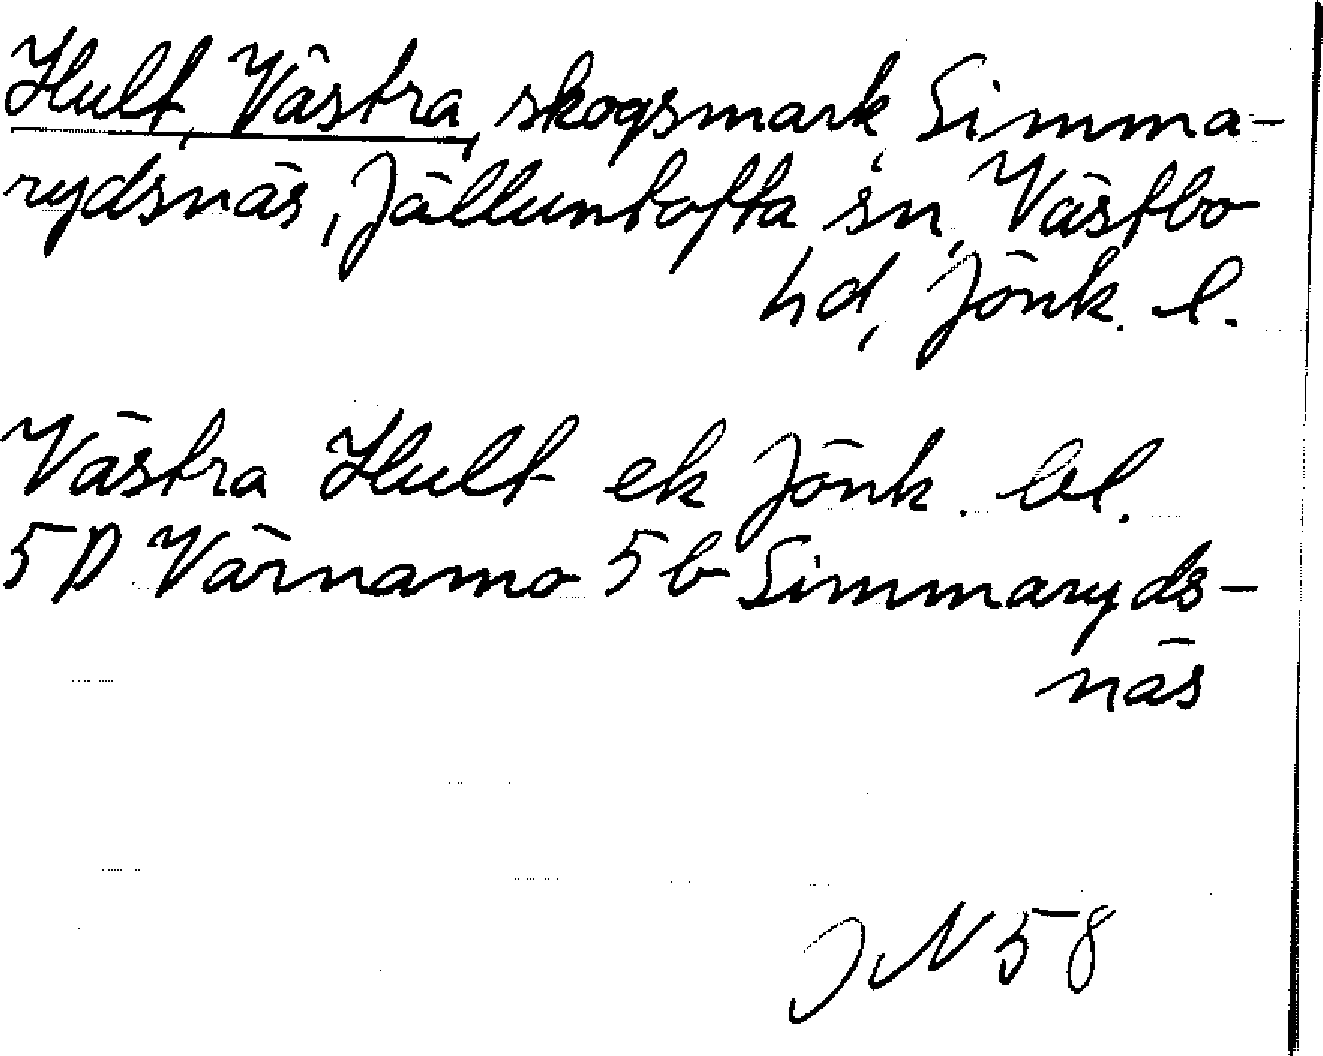 Hult, Västra, skogsmark, Simma-
rydsnäs, Jälluntofta sn, Västbo
hd, Jönk. l.
Västra Hult ek Jönk. bl.
5D Värnamo 5b Simmaryds-
näs
JN 58